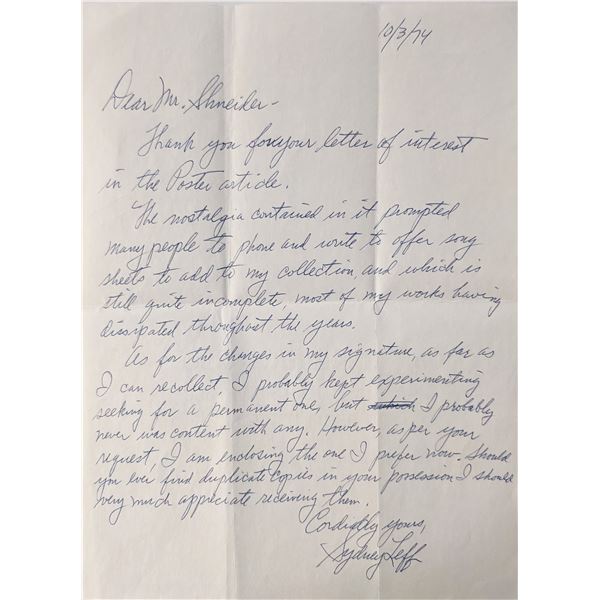 10/3/74
Dear Mr. Shneider-
Thank you for your letter of interest
in the Poster article.
The nostalgia contained in it prompted
many people to phone and write to offer song
sheets to add to my collection, and which is
still quite incomplete, most of my works having
dissipated throughout the years.
As for the changes in my signature, as far as
I can recollect, I probably kept experimenting
seeking for a permanent one, but which I probably
never was content with any. However, as per your
request, I am enclosing the one I prefer now. Should
you ever find duplicate copies in your possession I should
very much appreciate receiving them.
Cordially yours,
Sydney Leff